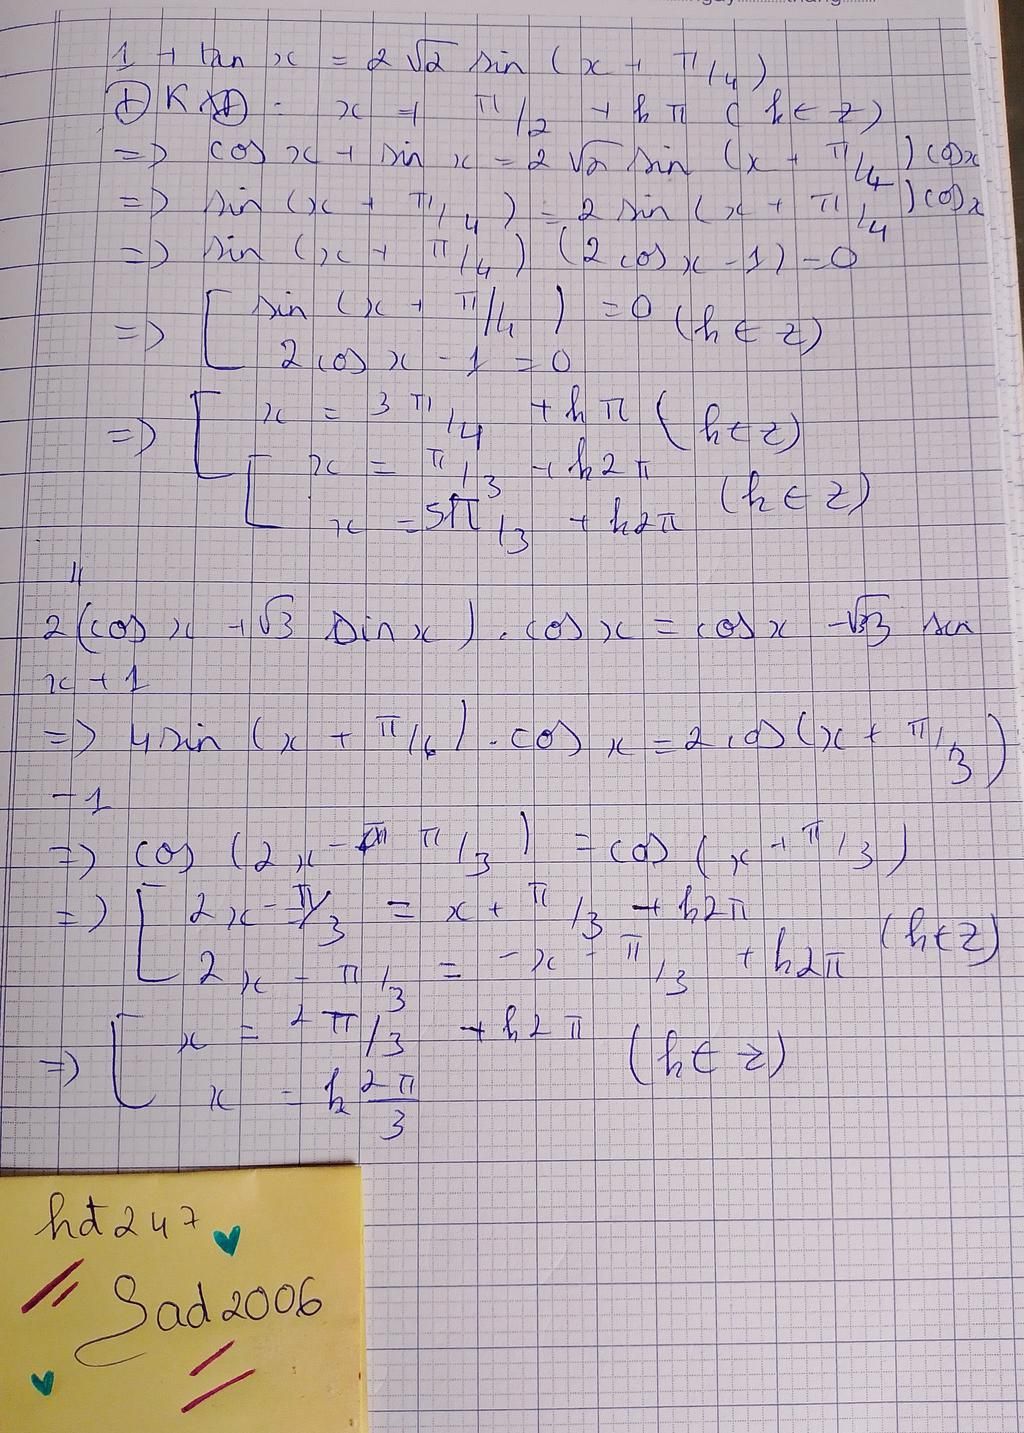 1 + tan x = 2 √2 sin (x + π/4)
ĐKXĐ : x ≠ π/2 + kπ (k ∈ Z)
=> cos x + sin x = 2 √2 sin (x + π/4) cosx
=> sin (x + π/4) = 2 sin (x + π/4) cosx
=> sin (x + π/4) (2 cos x - 1) = 0
=> [ sin (x + π/4) = 0 (k ∈ Z)
2 cos x - 1 = 0
=> [ x = 3π/4 + kπ (k ∈ Z)
[ x = π/3 + k2π
x = 5π/3 + k2π (k ∈ Z)
2 (cos x + √3 sin x) . cos x = cos x - √3 sin
x + 1
=> 4 sin (x + π/6) . cos x = 2 cos (x + π/3)
- 1
=> cos (2x - π/3) = cos (x + π/3)
=> [ 2x - π/3 = x + π/3 + k2π
2x - π/3 = -x - π/3 + k2π (k ∈ Z)
=> [ x = 2π/3 + k2π (k ∈ Z)
x = k 2π/3
hđ247
Sad2006